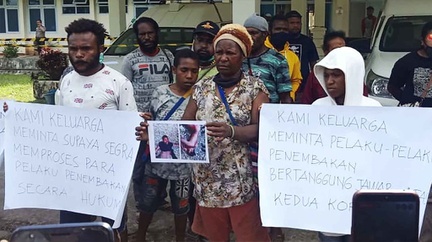 FILA
KAMI KELUARGA
MEMINTA SUPAYA SEGRA
MEMPROSES PARA
PELAKU PENEMBAKAN
SECARA HUKUM
KAMI KELUARGA
MEMINTA PELAKU-PELAKU
PENEMBAKAN
BERTANGGUNG JAWAB
KEDUA